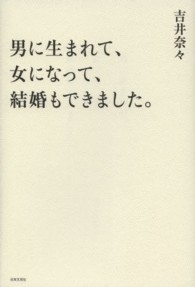 吉井奈々
男に生まれて、
女になって、
結婚もできました。